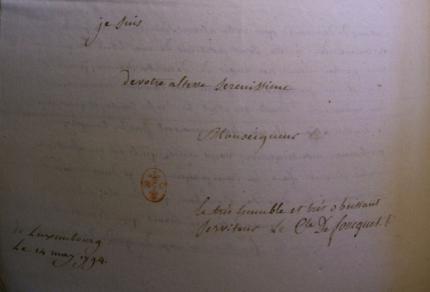 je suis
de votre altesse serenissime
Monseigneur
le très humble et très obeissant
Serviteur Le Cte De
Luxembourg
Le 14 may 1794.